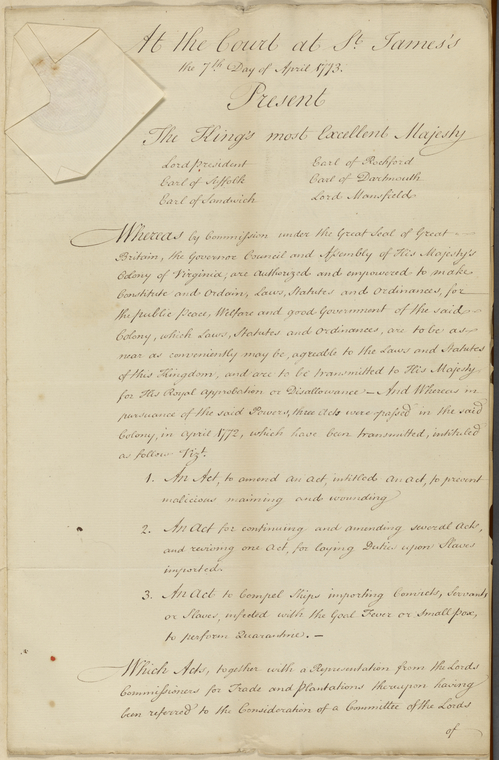 At the Court at St. James's
the 7th Day of April 1773.
Present
The King's most Excellent Majesty
Lord President Earl of Rochford
Earl of Suffolk Earl of Dartmouth
Earl of Sandwich Lord Mansfield
Whereas by Commission under the Great Seal of Great
Britain, the Governor Council and Assembly of His Majesty's
Colony of Virginia, are authorized and empowered to make
Constitute and Ordain, Laws, Statutes and Ordinances, for
the public Peace, Welfare and good Government of the said
Colony, which Laws, Statutes and Ordinances, are to be as
near as conveniently may be, agreable to the Laws and Statutes
of this Kingdom, and are to be transmitted to His Majesty
for His Royal Approbation or Disallowance — And Whereas in
pursuance of the said Powers, three Acts were passed in the said
Colony, in April 1772, which have been transmitted, intituled
as follow Vizt.
1. An Act, to amend an Act, intitled an Act, to prevent
malicious maiming and wounding
2. An Act for continuing and amending several Acts,
and reviving one Act, for laying Duties upon Slaves
imported.
3. An Act to Compel Ships importing Convicts, Servants
or Slaves, infected with the Goal Fever or Small pox,
to perform Quarantine. —
Which Acts, together with a Representation from the Lords
Commissioners for Trade and Plantations thereupon having
been referred to the Consideration of a Committee of the Lords
of